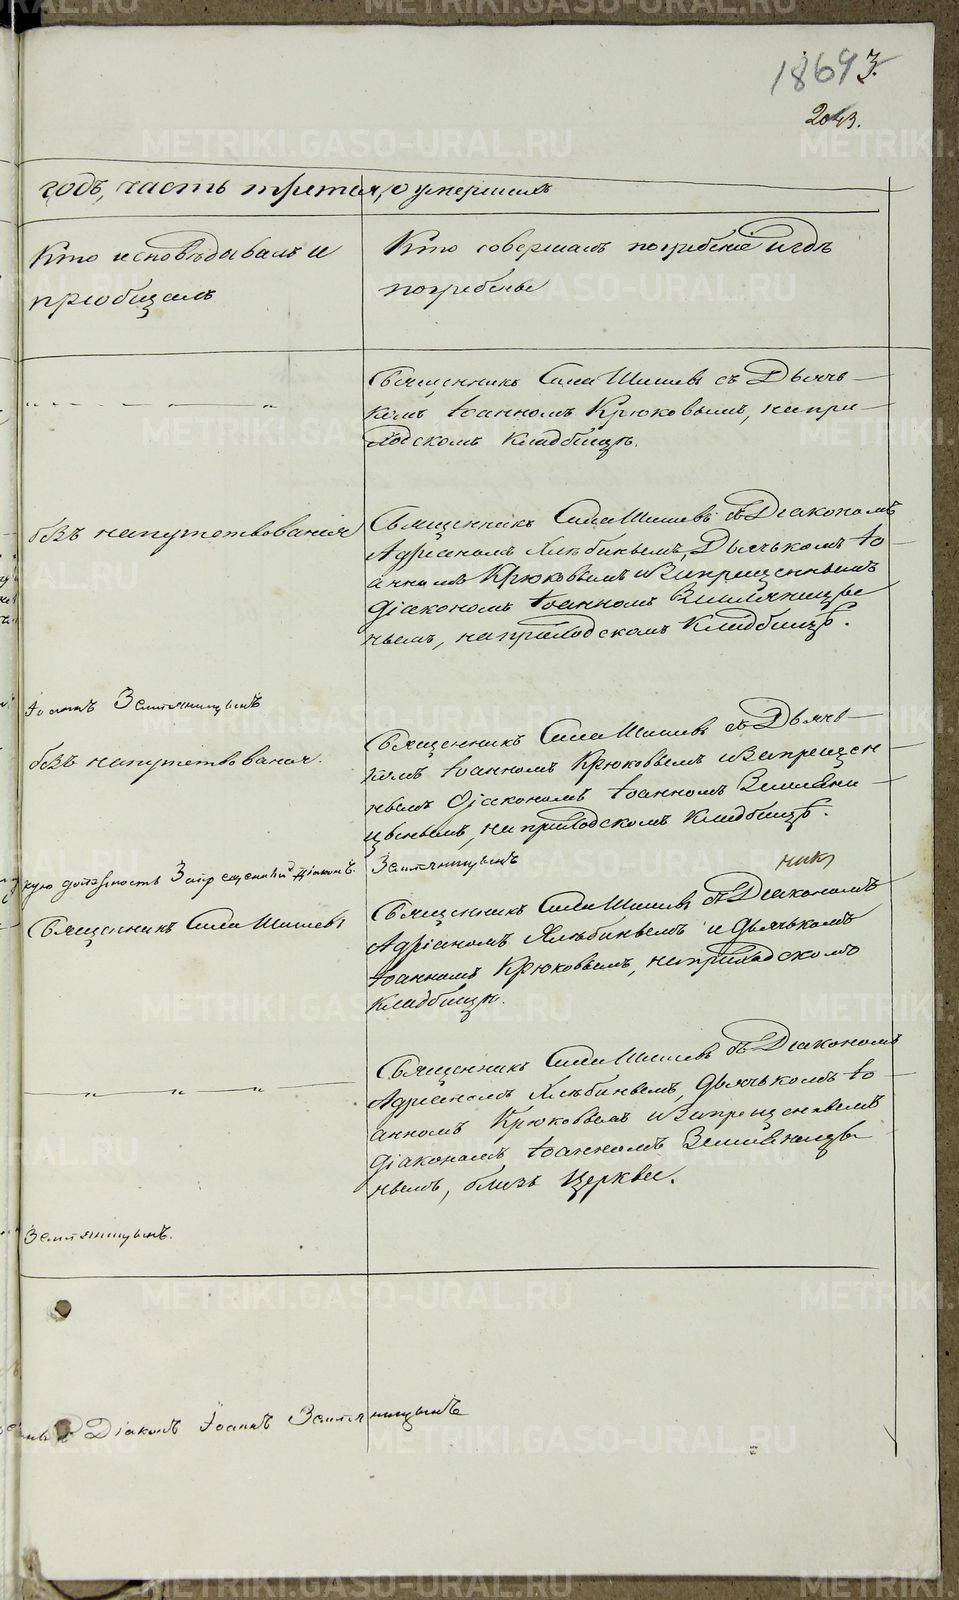 1869 3.
2043.
годъ, часть третья, о умершихъ
Кто исповѣдывалъ и
приобщалъ
Кто совершалъ погребеніе и гдѣ
погребены
Священникъ Сила Шишевъ съ Дьячь-
комъ Іоанномъ Крюковымъ, на при-
ходскомъ кладбищѣ.
безъ напутствованія
Священникъ Сила Шишевъ съ Діакономъ
Адріаномъ Хлѣбинымъ, Дьячькомъ Іо-
анномъ Крюковымъ и Запрещеннымъ
Діакономъ Іоанномъ Земляницы-
нымъ, на приходскомъ кладбищѣ.
Іоаннъ Земляницынъ
безъ напутствованія.
Священникъ Сила Шишевъ съ Дьячь-
комъ Іоанномъ Крюковымъ и Запрещен-
нымъ Діакономъ Іоанномъ Земляни-
цынымъ, на приходскомъ кладбищѣ.
кую должность Запрещенный Діаконъ Земляницынъ
Священникъ Сила Шишевъ
Священникъ Сила Шишевъ съ Діакономъ
Адріаномъ Хлѣбинымъ и дьячькомъ
Іоанномъ Крюковымъ, на приходскомъ
кладбищѣ.
Священникъ Сила Шишевъ съ Діакономъ
Адріаномъ Хлѣбинымъ, дьячькомъ Іо-
анномъ Крюковымъ и Запрещеннымъ
Діакономъ Іоанномъ Земляницы-
нымъ, близь Церкви.
Земляницынъ.
Діаконъ Іоаннъ Земляницынъ
METRIKI.GASO-URAL.RU